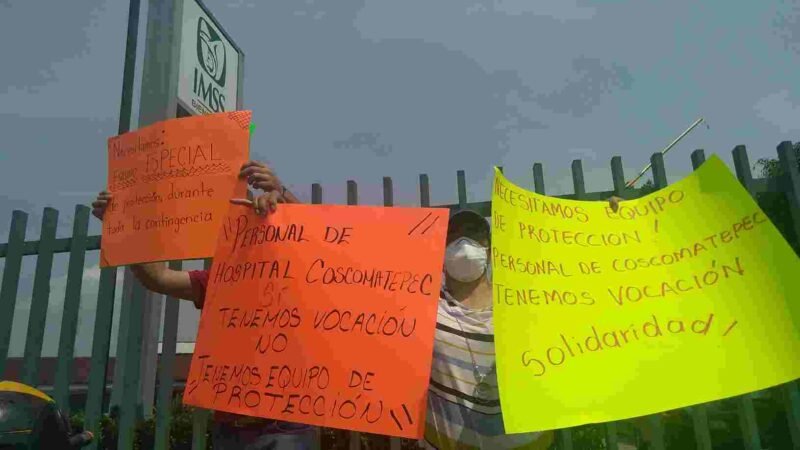 IMSS
Necesitamos:
Equipo ESPECIAL
de protección, durante
toda la contingencia
"PERSONAL DE
HOSPITAL COSCOMATEPEC
SÍ
TENEMOS VOCACIÓN
NO
TENEMOS EQUIPO DE
PROTECCIÓN"
¡NECESITAMOS EQUIPO
DE PROTECCION!
PERSONAL DE COSCOMATEPEC
TENEMOS VOCACIÓN
Solidaridad!